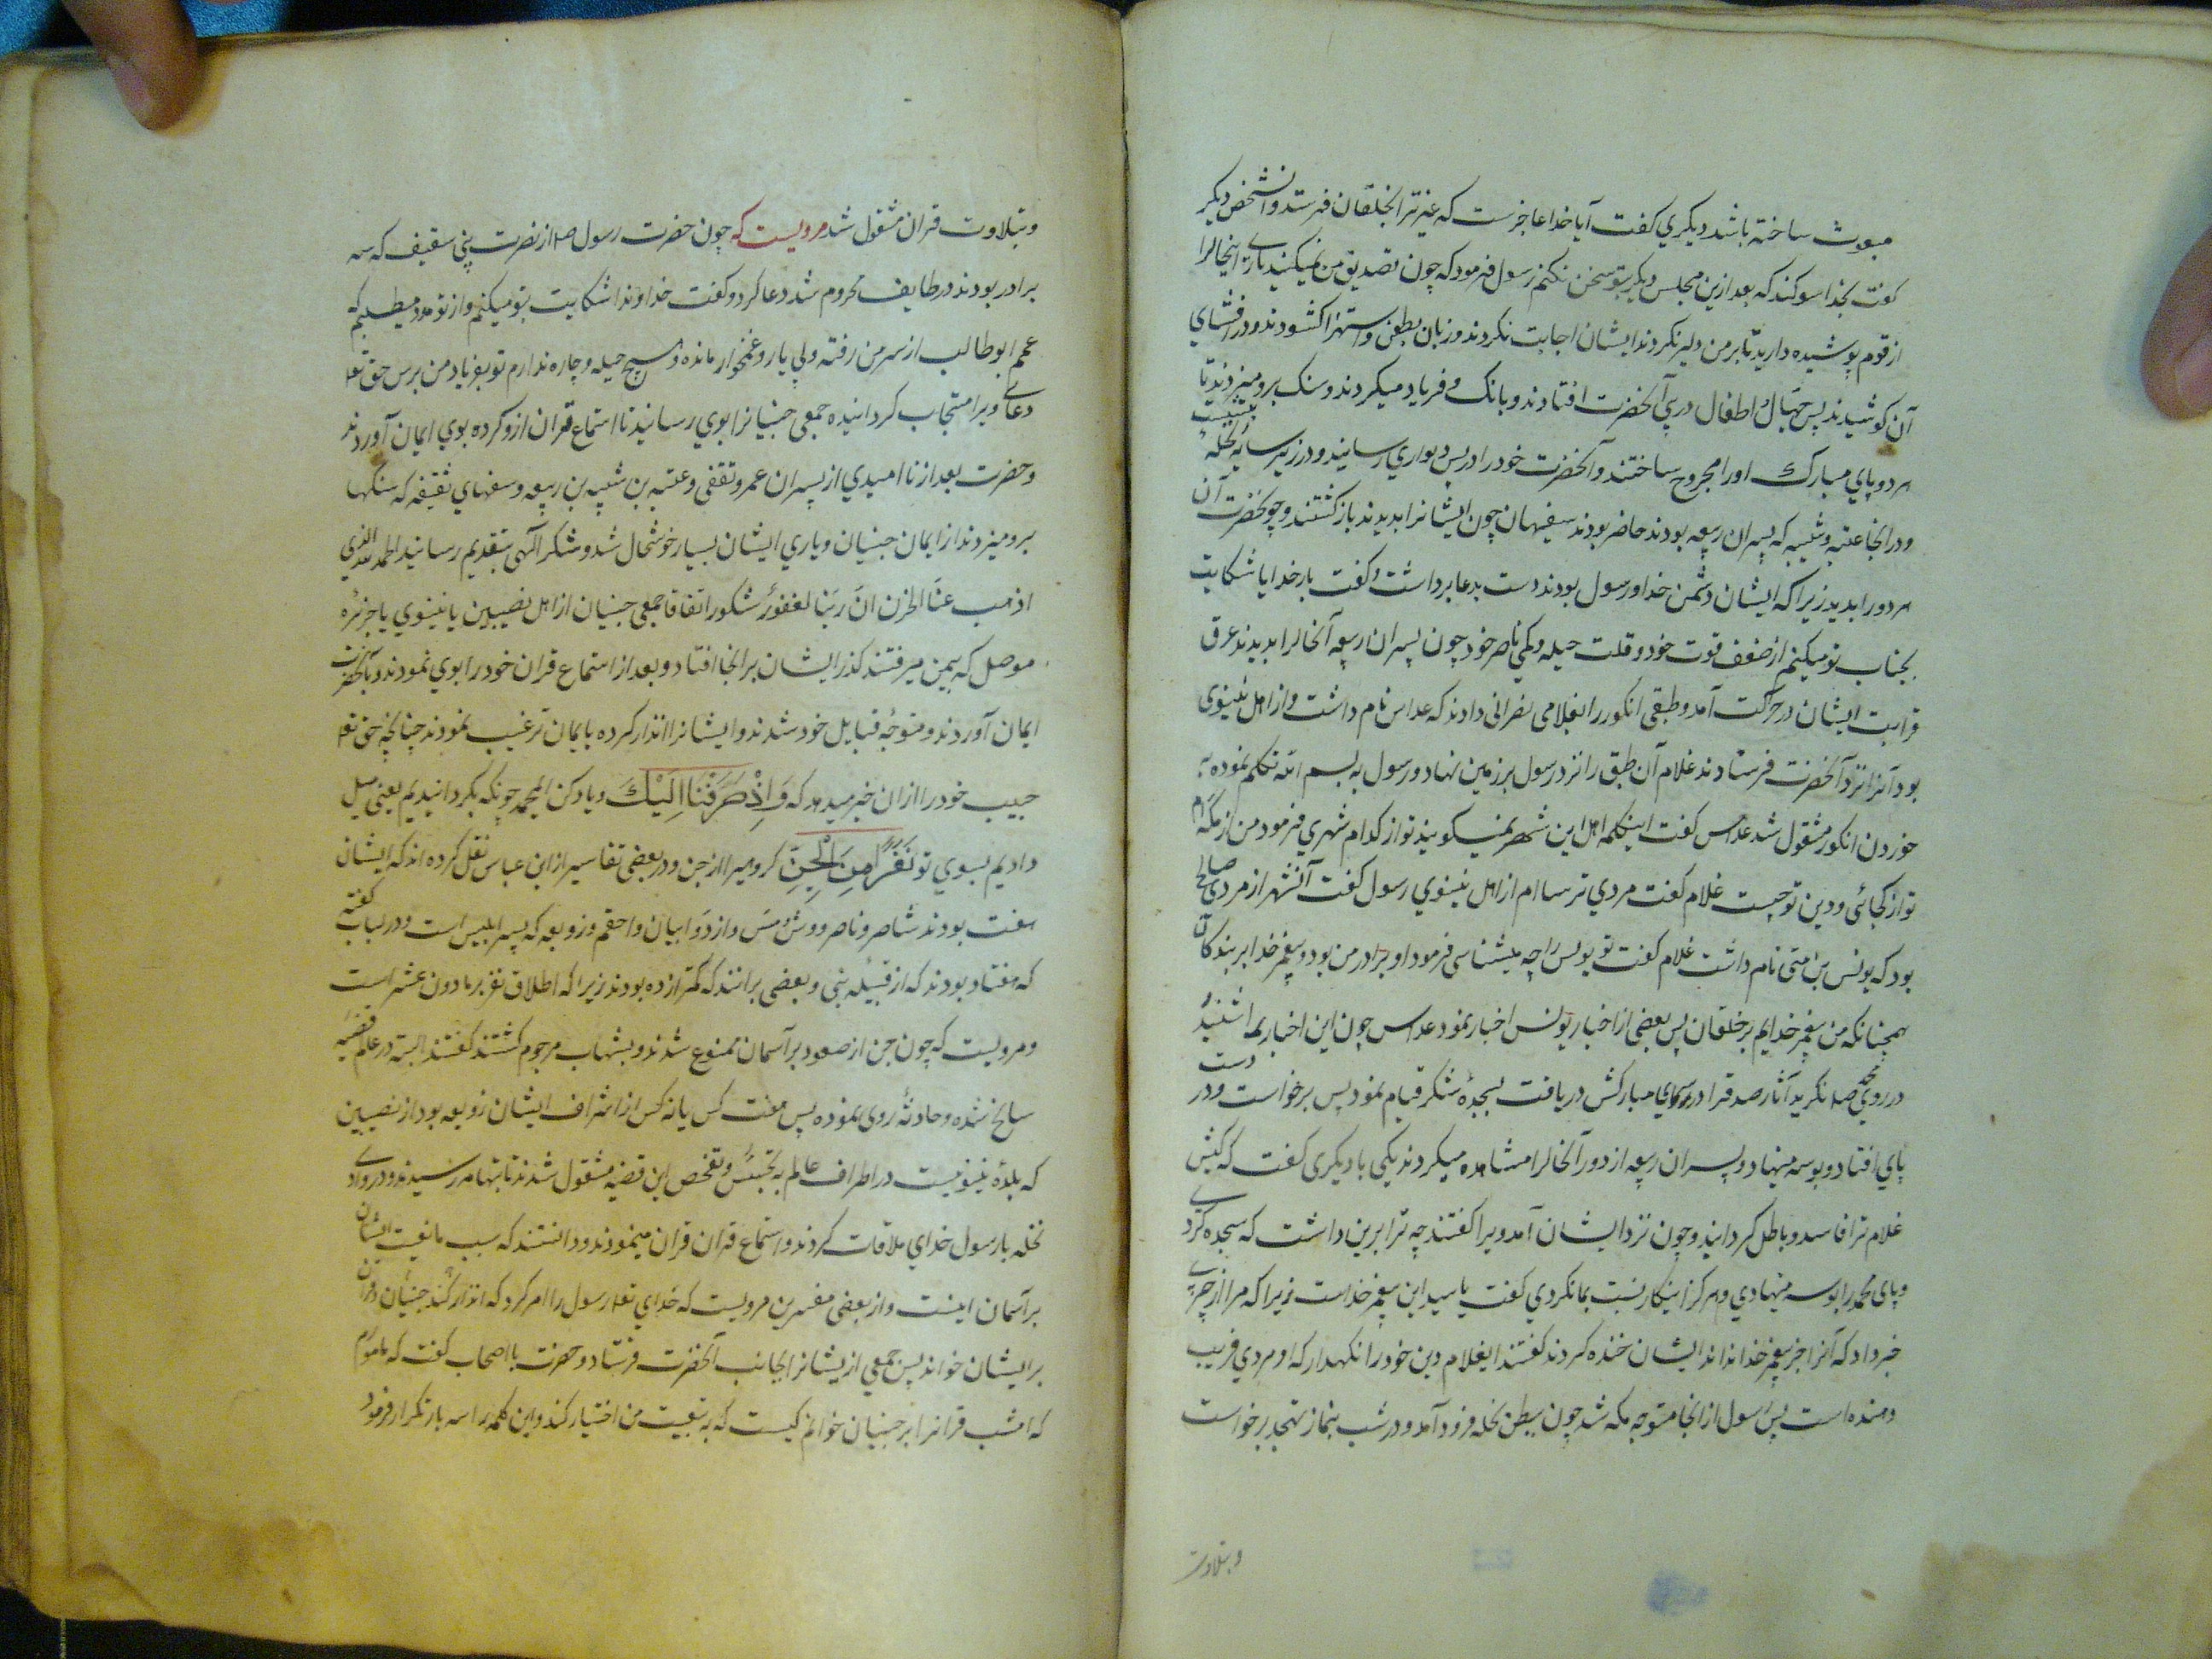 مبعوث ساخته باشد دیکری کفت آیا خدا عاجزست که غیر ترا بخلقان فرستد و آنشخص دیکر
کفت بخدا سوکند که بعد ازین مجلس دیکر بتو سخن نکنم رسول فرمود که چون تصدیق من نمیکنید باری اینحال را
از قوم پوشیده دارید تا بر من دلیر نکردند ایشان اجابت نکردند و زبان بطعن و استهزا کشودند و در افشای
آن کوشیدند پس جهال و اطفال در پی آنحضرت افتادند و بانک و فریاد میکردند و سنک برو میزدند تا
هر دو پای مبارک او را مجروح ساختند و آنحضرت خود را در پس دیواری رسانید و در زیر سایه نخله بنشست
و در آنجا عتبه و شیبه که پسران ربیعه بودند حاضر بودند سفیهان چون ایشانرا بدیدند باز کشتند و چون حضرت آن
هر دو را بدید زیرا که ایشان دشمن خدا و رسول بودند دست بدعا برداشت و کفت بار خدایا شکایت
بجناب تو میکنم از ضعف قوت خود و قلت حیله و کمی ناصر خود چون پسران ربیعه آنحال را بدیدند عرق
قرابت ایشان در حرکت آمد و طبقی انکور را بغلامی نصرانی دادند که عداس نام داشت و از اهل نینوی
بود آنرا نزد آنحضرت فرستادند غلام آن طبق را نزد رسول بر زمین نهاد و رسول به بسم الله تکلم نموده به
خوردن انکور مشغول شد عداس کفت اینکلمه اهل این شهر نمیکویند تو از کدام شهری فرمود من از مکه ام
تو از کجائی و دین تو چیست غلام کفت مردی ترساام از اهل نینوی رسول کفت آنشهر از مردی صالح
بود که یونس بن متی نام داشت غلام کفت تو یونس را چه میشناسی فرمود او برادر من بود و پیغمبر خدا بر بندکان
همچنانکه من پیغمبر خدایم بر خلقان پس بعضی از اخبار یونس اخبار نمود عداس چون این اخبار را شنید
در روی محمد صلع نکرید آثار صدق را در سیمای مبارکش دریافت بسجدهٔ شکر قیام نمود پس برخواست و در دست
پای افتاد و بوسه مینهاد و پسران ربیعه از دور آنحال را مشاهده میکردند یکی با دیکری کفت که کیش
غلام ترا فاسد و باطل کردانید و چون نزد ایشان آمد ویرا کفتند چه ترا برین داشت که سجده کردی
و پای محمد را بوسه مینهادی و هرکز اینکار نسبت بما نکردی کفت یا سید این پیغمبر خداست زیرا که مرا از چیزی
خبر داد که آنرا جز پیغمبر خدا نداند ایشان خنده کردند کفتند ایغلام دین خود را نکهدار که او مردی فریب
دهنده است پس رسول از آنجا متوجه مکه شد چون ببطن نخله فرود آمد و در شب بنماز تهجد برخواست
و بتلاوت
و بتلاوت قران مشغول شد مرویست که چون حضرت رسول صلع از نصرت بنی سقیف که سه
برادر بودند در طایف محروم شد دعا کرد و کفت خداوندا شکایت بتو میکنم و از تو مدد میطلبم که
عمم ابوطالب از سر من رفته و بی یار و غمخوار مانده و هیچ حیله و چاره ندارم تو بفریاد من برس حق تعا
دعای ویرا مستجاب کردانیده جمعی جنیانرا بوی رسانید تا استماع قران ازو کرده بوی ایمان آوردند
و حضرت بعد از ناامیدی از پسران عمرو ثقفی و عتبه بن شیبه بن ربیعه و سفهای ثقیفه که سنکها
برو میزدند از ایمان جنیان و یاری ایشان بسیار خوشحال شد و شکر الهی بتقدیم رسانید الحمد لله الذی
اذهب عنّا الحزن انّ ربّنا لغفورٌ شکور اتفاقا جمعی جنیان از اهل نصیبین یا نینوی یا جزیره
موصل که بیمن میرفتند کذر ایشان بر آنجا افتاد و بعد از استماع قران خود را بوی نمودند و بآنحضرت
ایمان آوردند و متوجه قبایل خود شدند و ایشانرا انذار کرده بایمان ترغیب نمودند چنانچه حق تعا
حبیب خود را از ان خبر میدهد که وَاِذْ صَرَفْنَا اِلَیْکَ و یاد کن ای محمد چونکه بکردانیدیم یعنی میل
دادیم بسوی تو نَفَرًا مِنَ الْجِنِّ کروهیرا از جن و در بعضی تفاسیر از ابن عباس نقل کرده اند که ایشان
هفت بودند شاصر و ناصر و وش و مس و ازد و ابیان و احقم و زوبعه که پسر ابلیس است و در لباب کفته
که هفتاد بودند که از قبیله بنی و بعضی برانند که کمتر از ده بودند زیرا که اطلاق نفر بر مادون عشر است
و مرویست که چون جن از صعود بر آسمان ممنوع شدند و بشهاب مرجوم کشتند کفتند البته در عالم قضیه
سانح شده و حادثهٔ روی نموده پس هفت کس یا نه کس از اشراف ایشان زوبعه بود از نصیبین
که بلدهٔ نینویست در اطراف عالم به تجسّس و تفحص این قضیه مشغول شدند تا بتهامه رسیدند و در وادی
نخله با رسول خدای ملاقات کردند و استماع قران قران مینمودند و دانستند که سبب مانعیت ایشان
بر آسمان اینست و از بعضی مفسرین مرویست که خدای تعا رسول را امر کرد که انذار کند جنیان و قران
بر ایشان خواند پس جمعی از یشانرا بجانب آنحضرت فرستاد و حضرت با اصحاب کفت که مامورم
که امشب قرانرا بر جنیان خوانم کیست که به تبعیت من اختیار کند و این کلمه را سه بار تکرار فرمود